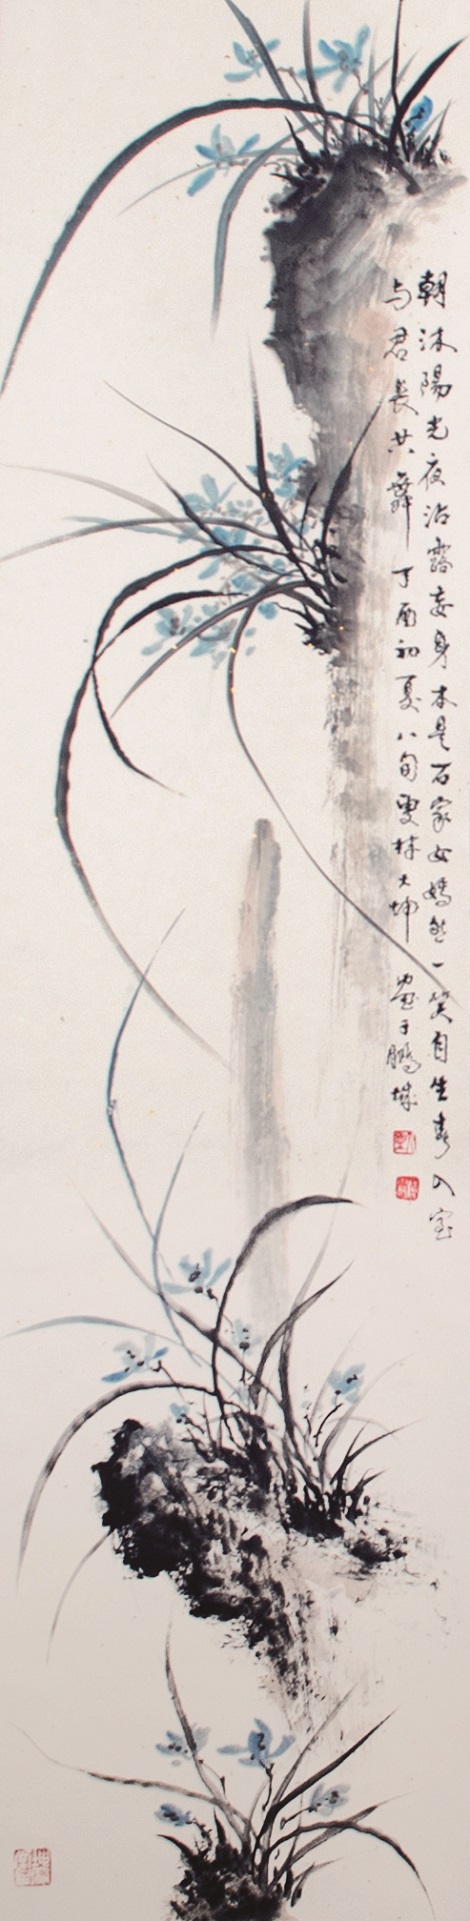 朝沐陽光夜沾露妾身本是石家女嫣然一笑自生春入室
与君長共舞 丁酉初夏八旬雯林大坤 画于鵬城